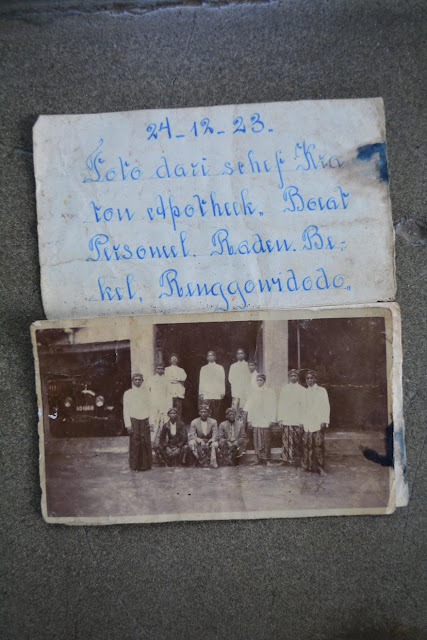 24-12-23.
Foto dari schef Kra
ton Apotheek. Boeat
Personeel. Raden. Be-
kel, Renggowidodo.